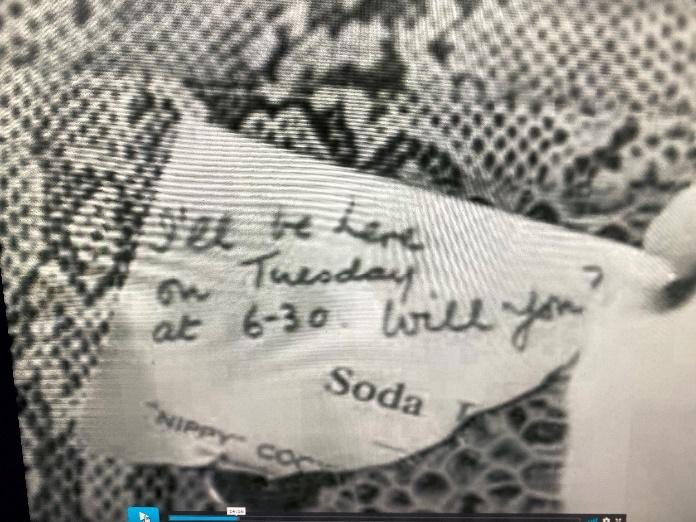 I'll be here
on Tuesday
at 6-30. Will you?
Soda
"NIPPY"